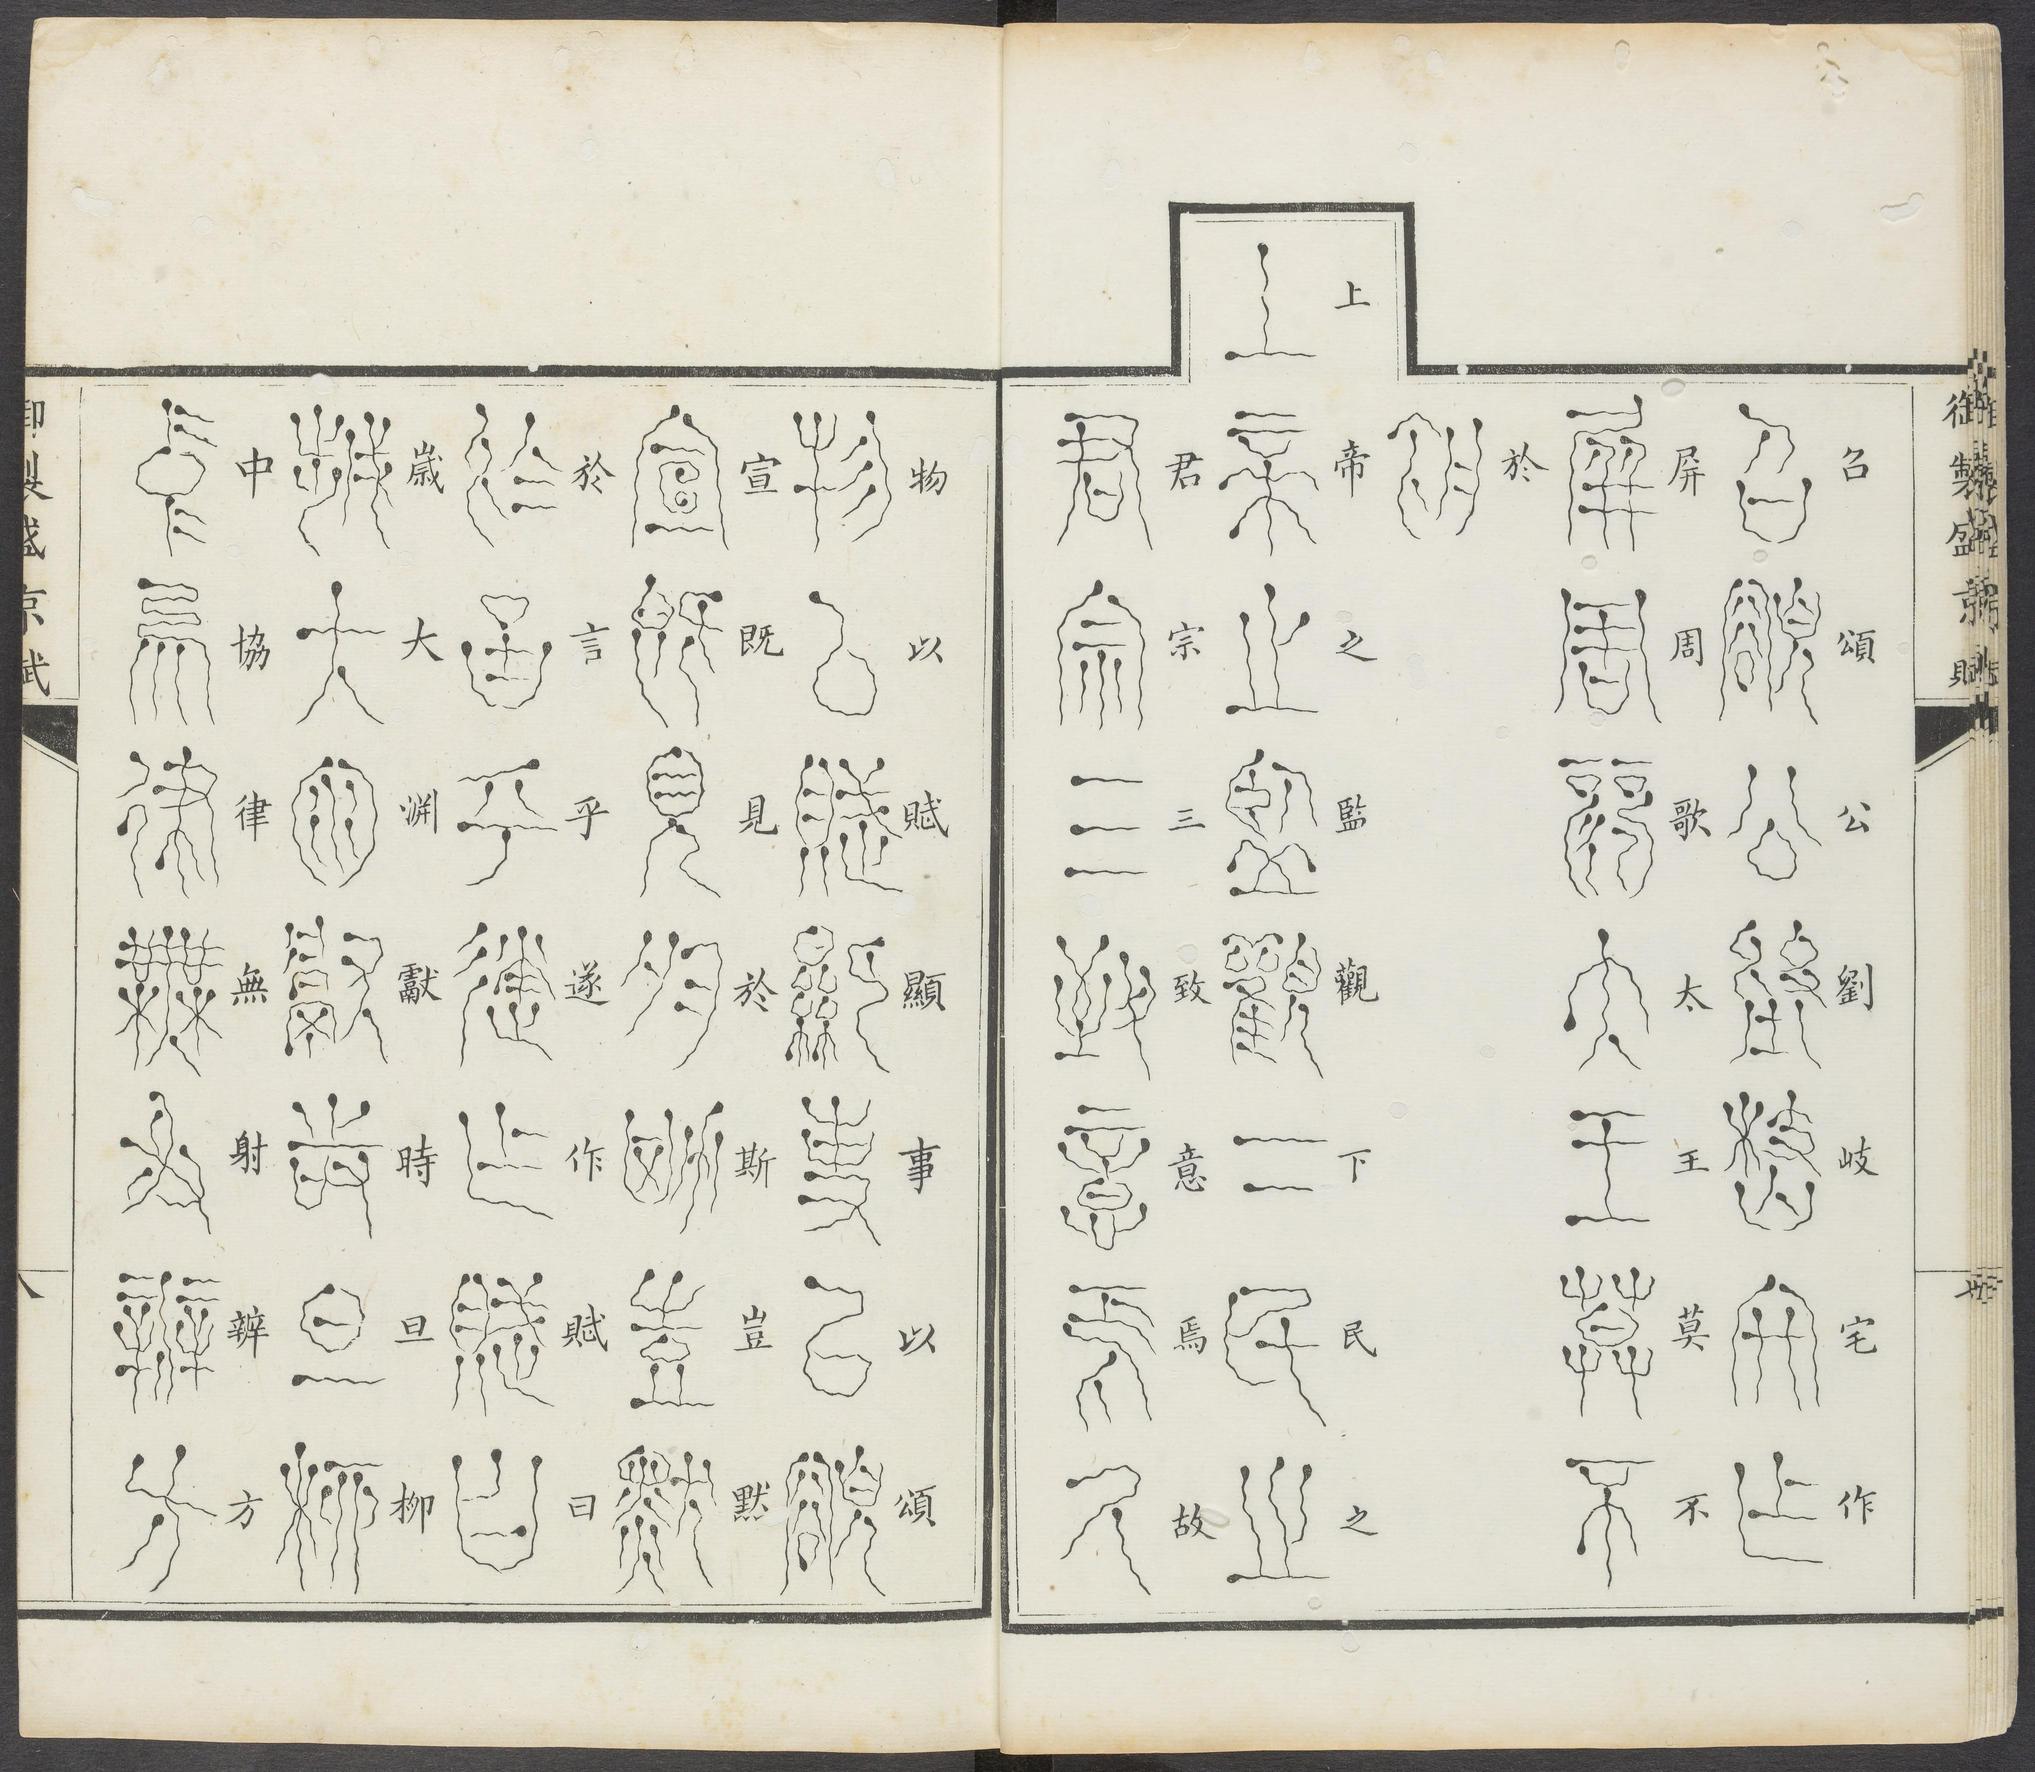 召頌公劉岐宅作
屏周歌太王莫不
於
上帝之監觀下民之
君宗三致意焉故
物以賦顯事以頌
宣既見於斯豈默
於言乎遂作賦曰
歲大淵獻時旦柳
中協律無射辨方
御製盛京賦